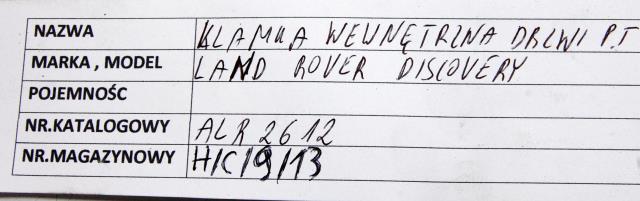 NAZWA KLAMKA WEWNĘTRZNA DRZWI P.T
MARKA , MODEL LAND ROVER DISCOVERY
POJEMNOŚC
NR.KATALOGOWY ALR 2612
NR.MAGAZYNOWY H/C/9/13